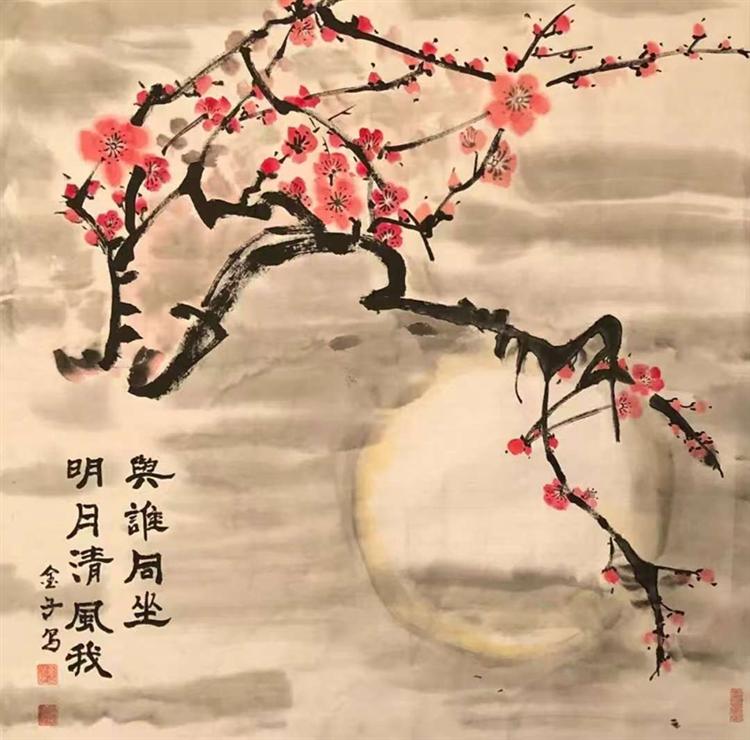 與誰同坐
明月清風我
金子写